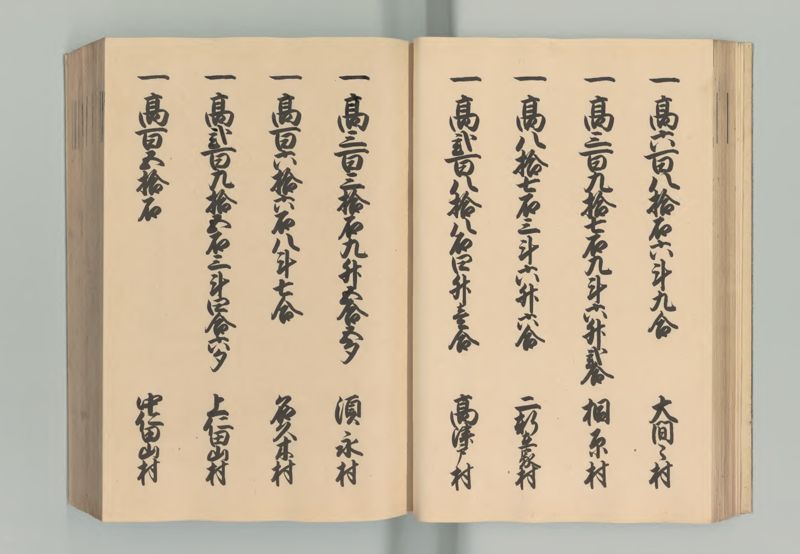 一 高六百八拾石六斗九合 大間々村
一 高三百九拾七石九斗六升弐合 桐原村
一 高八拾七石三斗六升六合 二渡村
一 高弐百八拾八石四升壱合 高津戸村
一 高三百三拾石九升五合五夕 須永村
一 高百六拾六石八斗七合 名久木村
一 高弐百九拾五石三斗四合六夕 上仁田山村
一 高百五拾石 中仁田山村